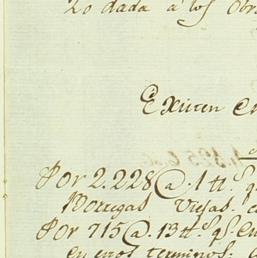 zo dada a los Obr
Existen en
Por 2.228@. 1 tt.s q.
Borregas Viejas. c
Por 715@. 13 tt.s q.e en
en otros terminos.